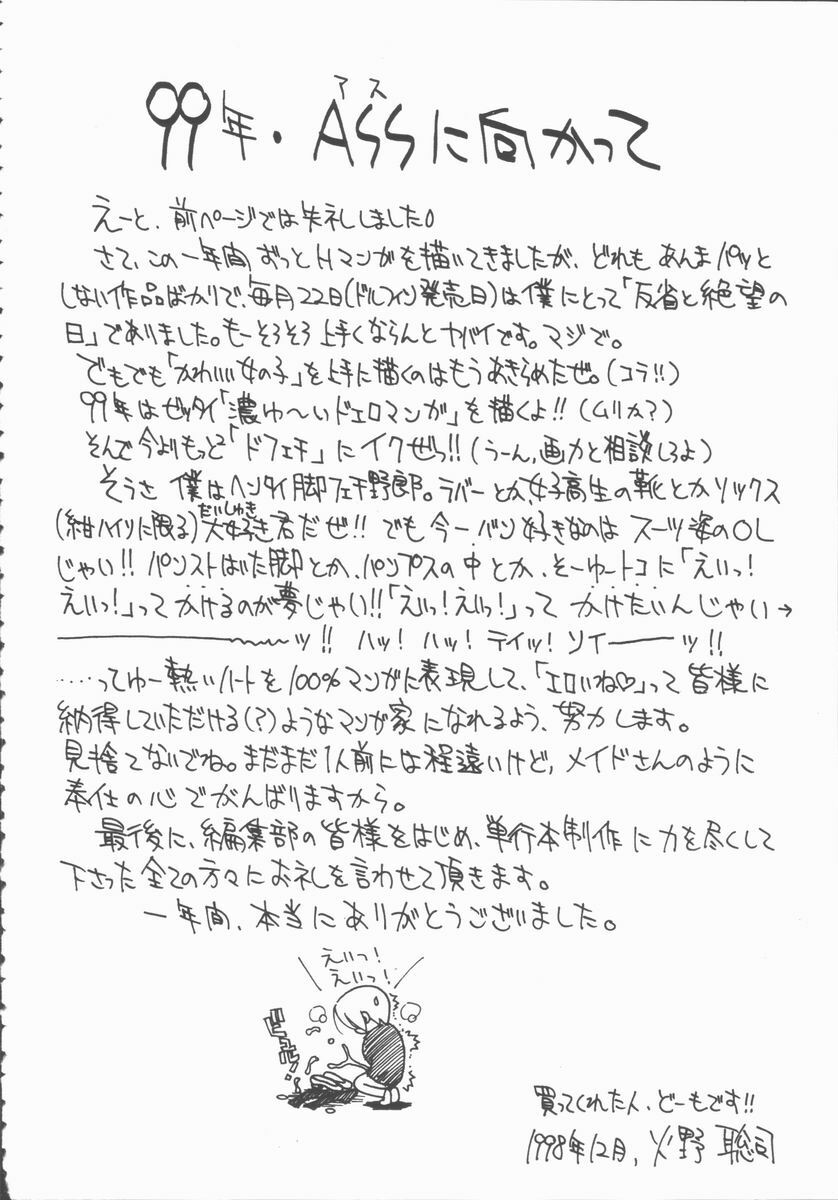 アス
99年・ASSに向かって
えーと、前ページでは失礼しました。
さて、この一年間ずっとHマンガを描いてきましたが、どれもあんまパッと
しない作品ばかりで、毎月22日(ドルフィン発売日)は僕にとって「反省と絶望の
日」でありました。もーそろそろ上手くならんとヤバイです。マジで。
でもでも「かわいい女の子」を上手に描くのはもうあきらめたぜ。(コラ!!)
99年はゼッタイ「濃ゆ〜いドエロマンガ」を描くよ!!(ムリか?)
そんで今よりもっと「ドフェチ」にイクぜっ!!(うーん、画力と相談しろよ)
そうさ 僕はヘンタイ脚フェチ野郎。ラバーとか、女子高生の靴とかソックス
だいしゅき
(紺ハイソに限る)大好き君だぜ!!でも今一バン好きなのは スーツ姿のOL
じゃい!!パンストはいた脚とか、パンプスの中とか、そーゆートコに「えいっ!
えいっ!」ってかけるのが夢じゃい!!「えいっ!えいっ!」って かけたいんじゃい→
――――――〜〜〜ッ!! ハッ! ハッ! テイッ! ソイ―――ッ!!
……ってゆー熱いハートを100%マンガに表現して、「エロいね♡」って皆様に
納得していただける(?)ようなマンガ家になれるよう、努力します。
見捨てないでね。まだまだ1人前には程遠いけど、メイドさんのように
奉仕の心でがんばりますから。
最後に、編集部の皆様をはじめ、単行本制作に力を尽くして
下さった全ての方々にお礼を言わせて頂きます。
一年間、本当にありがとうございました。
えいっ!
えいっ!
買ってくれた人、どーもです!!
1998年12月、火野聡司